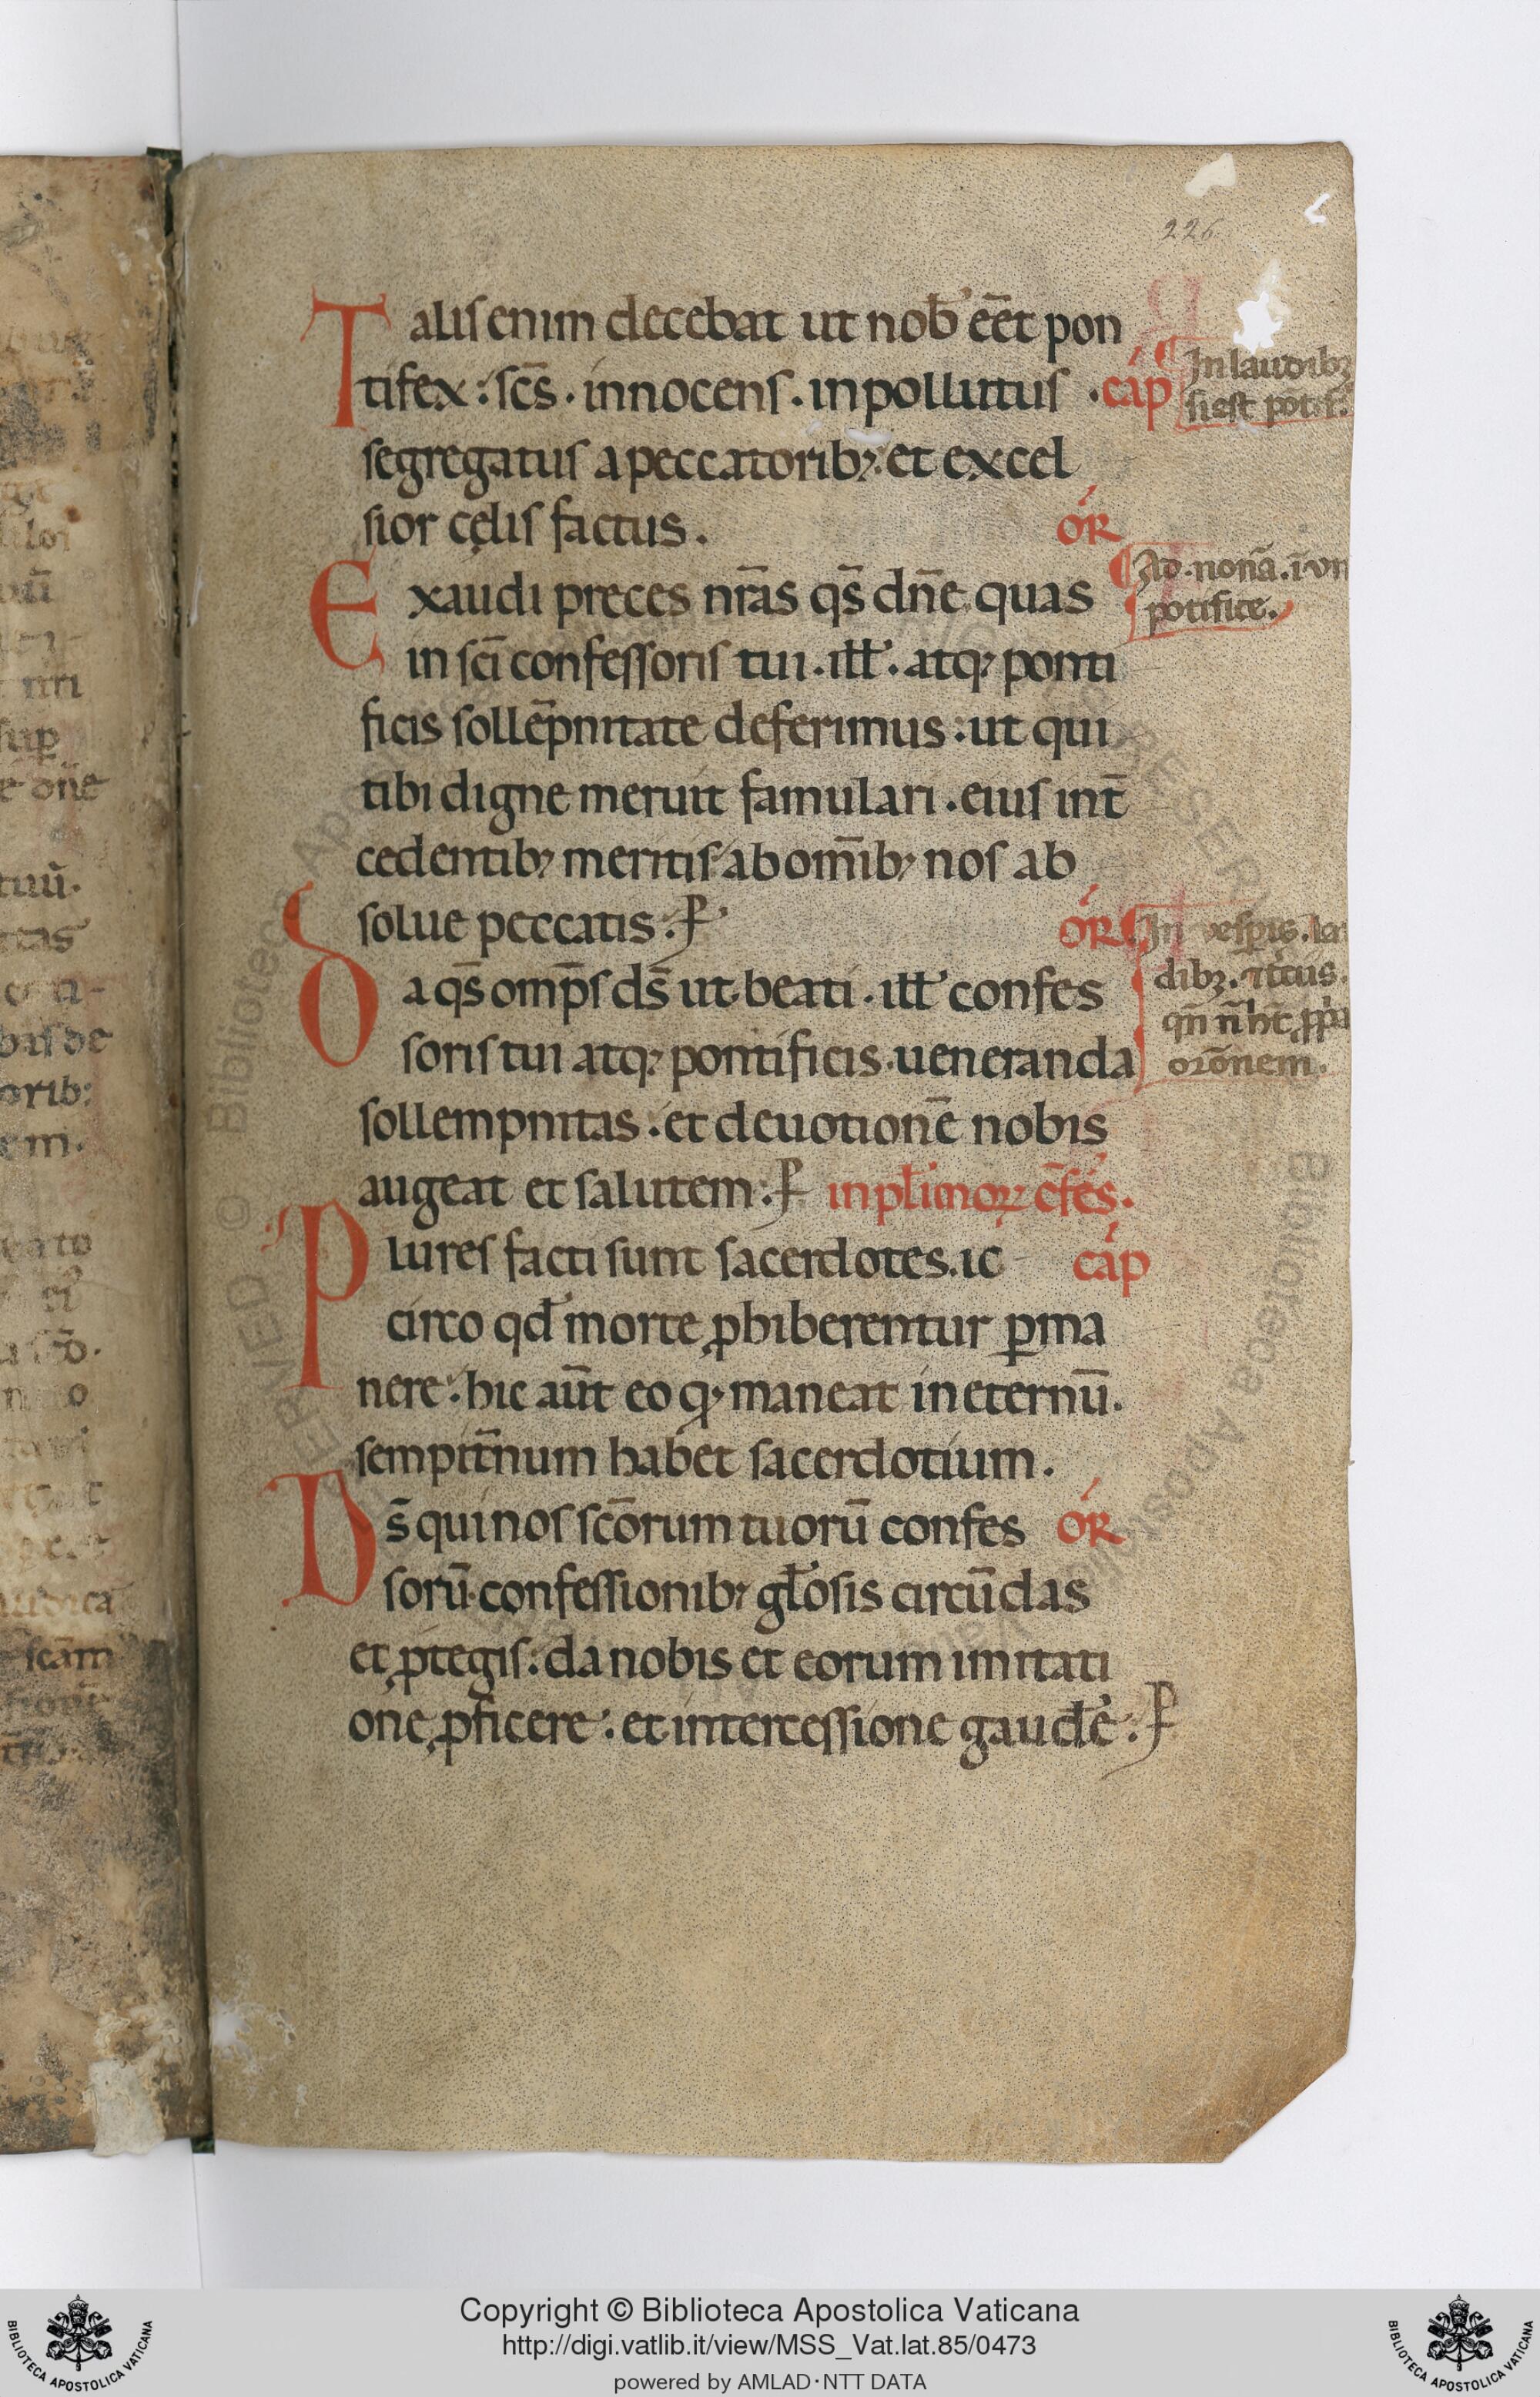 226
Talis enim decebat ut nob̄ eēt pon
tifex : sc̄s . innocens . inpollutus . cap̄
In laudibꝫ
si est pōtif.
segregatus a peccatoribꝫ : et excel
sior cęlis factus . or̄
Exaudi preces nr̄as qs̄ dn̄e quas
Ad . nonā . ī un
pōtifice .
in sc̄i confessoris tui . ill̄ . atqꝫ ponti
ficis sollēpnitate deferimus : ut qui
tibi digne meruit famulari . eius int̄
cedentibꝫ meritis ab om̄ibꝫ nos ab
solue peccatis : P or̄
In vesp̄is . lau
Da qs̄ omp̄s ds̄ ut beati . ill̄ confes
dibꝫ .
qn̄ n̄ ht̄
soris tui atqꝫ pontificis ueneranda
orōnem .
sollempnitas : et deuotionē nobis
augeat et salutem : P in pl̄imoꝝ c̄fes̄ .
Plures facti sunt sacerdotes . ic cap̄
circo qd̄ morte ꝓhiberentur ꝑma
nere : hic aūt eo qꝫ maneat in eternū .
sempit̄num habet sacerdotium .
Ds̄ qui nos sc̄orum tuorū confes or̄
sorū confessionibꝫ gl̄osis circūdas
et ꝓtegis : da nobis et eorum imitati
one ꝓficere : et intercessione gaud̄e : P
Copyright © Biblioteca Apostolica Vaticana
http://digi.vatlib.it/view/MSS_Vat.lat.85/0473
powered by AMLAD·NTT DATA
BIBLIOTECA APOSTOLICA VATICANA
BIBLIOTECA APOSTOLICA VATICANA